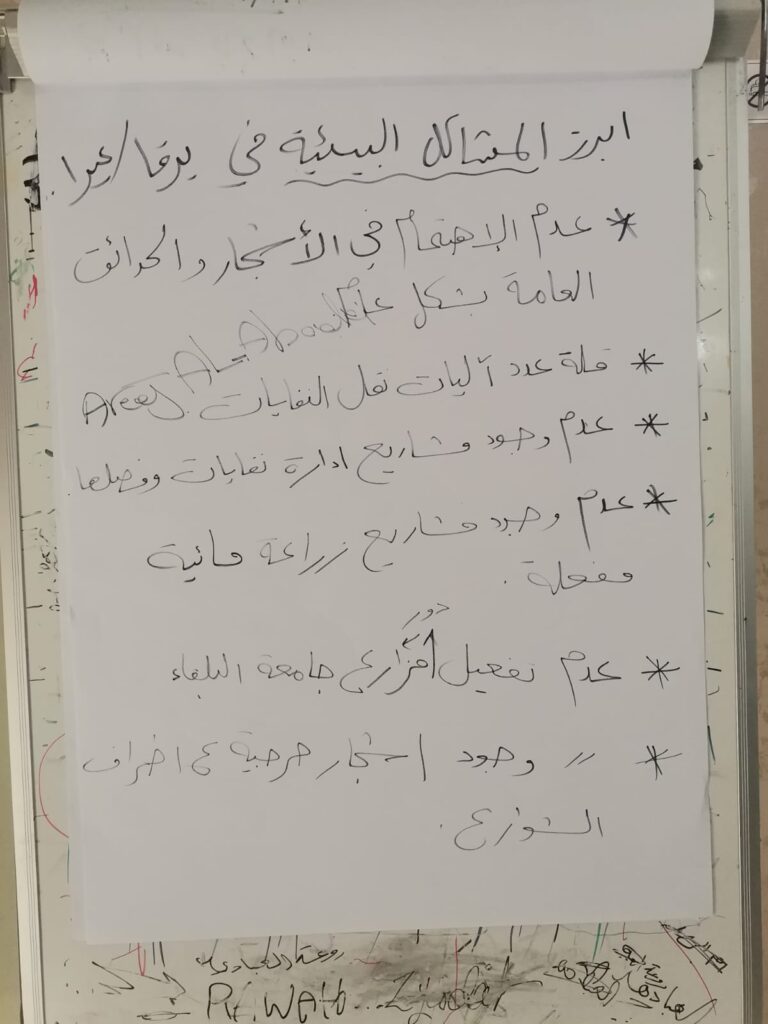 ابرز المشاكل البيئية في يرقا/عيرا.
* عدم الإهتمام في الأشجار والحدائق
العامة بشكل عام
Areej AL-Abaadi
* قلة عدد آليات نقل النفايات.
* عدم وجود مشاريع ادارة نفايات وفصلها.
* عدم وجود مشاريع زراعة مائية
مفعلة.
دور
* عدم تفعيل مزارع جامعة البلقاء
* 〃 وجود اشجار حرجية ع اطراف
الشوارع.